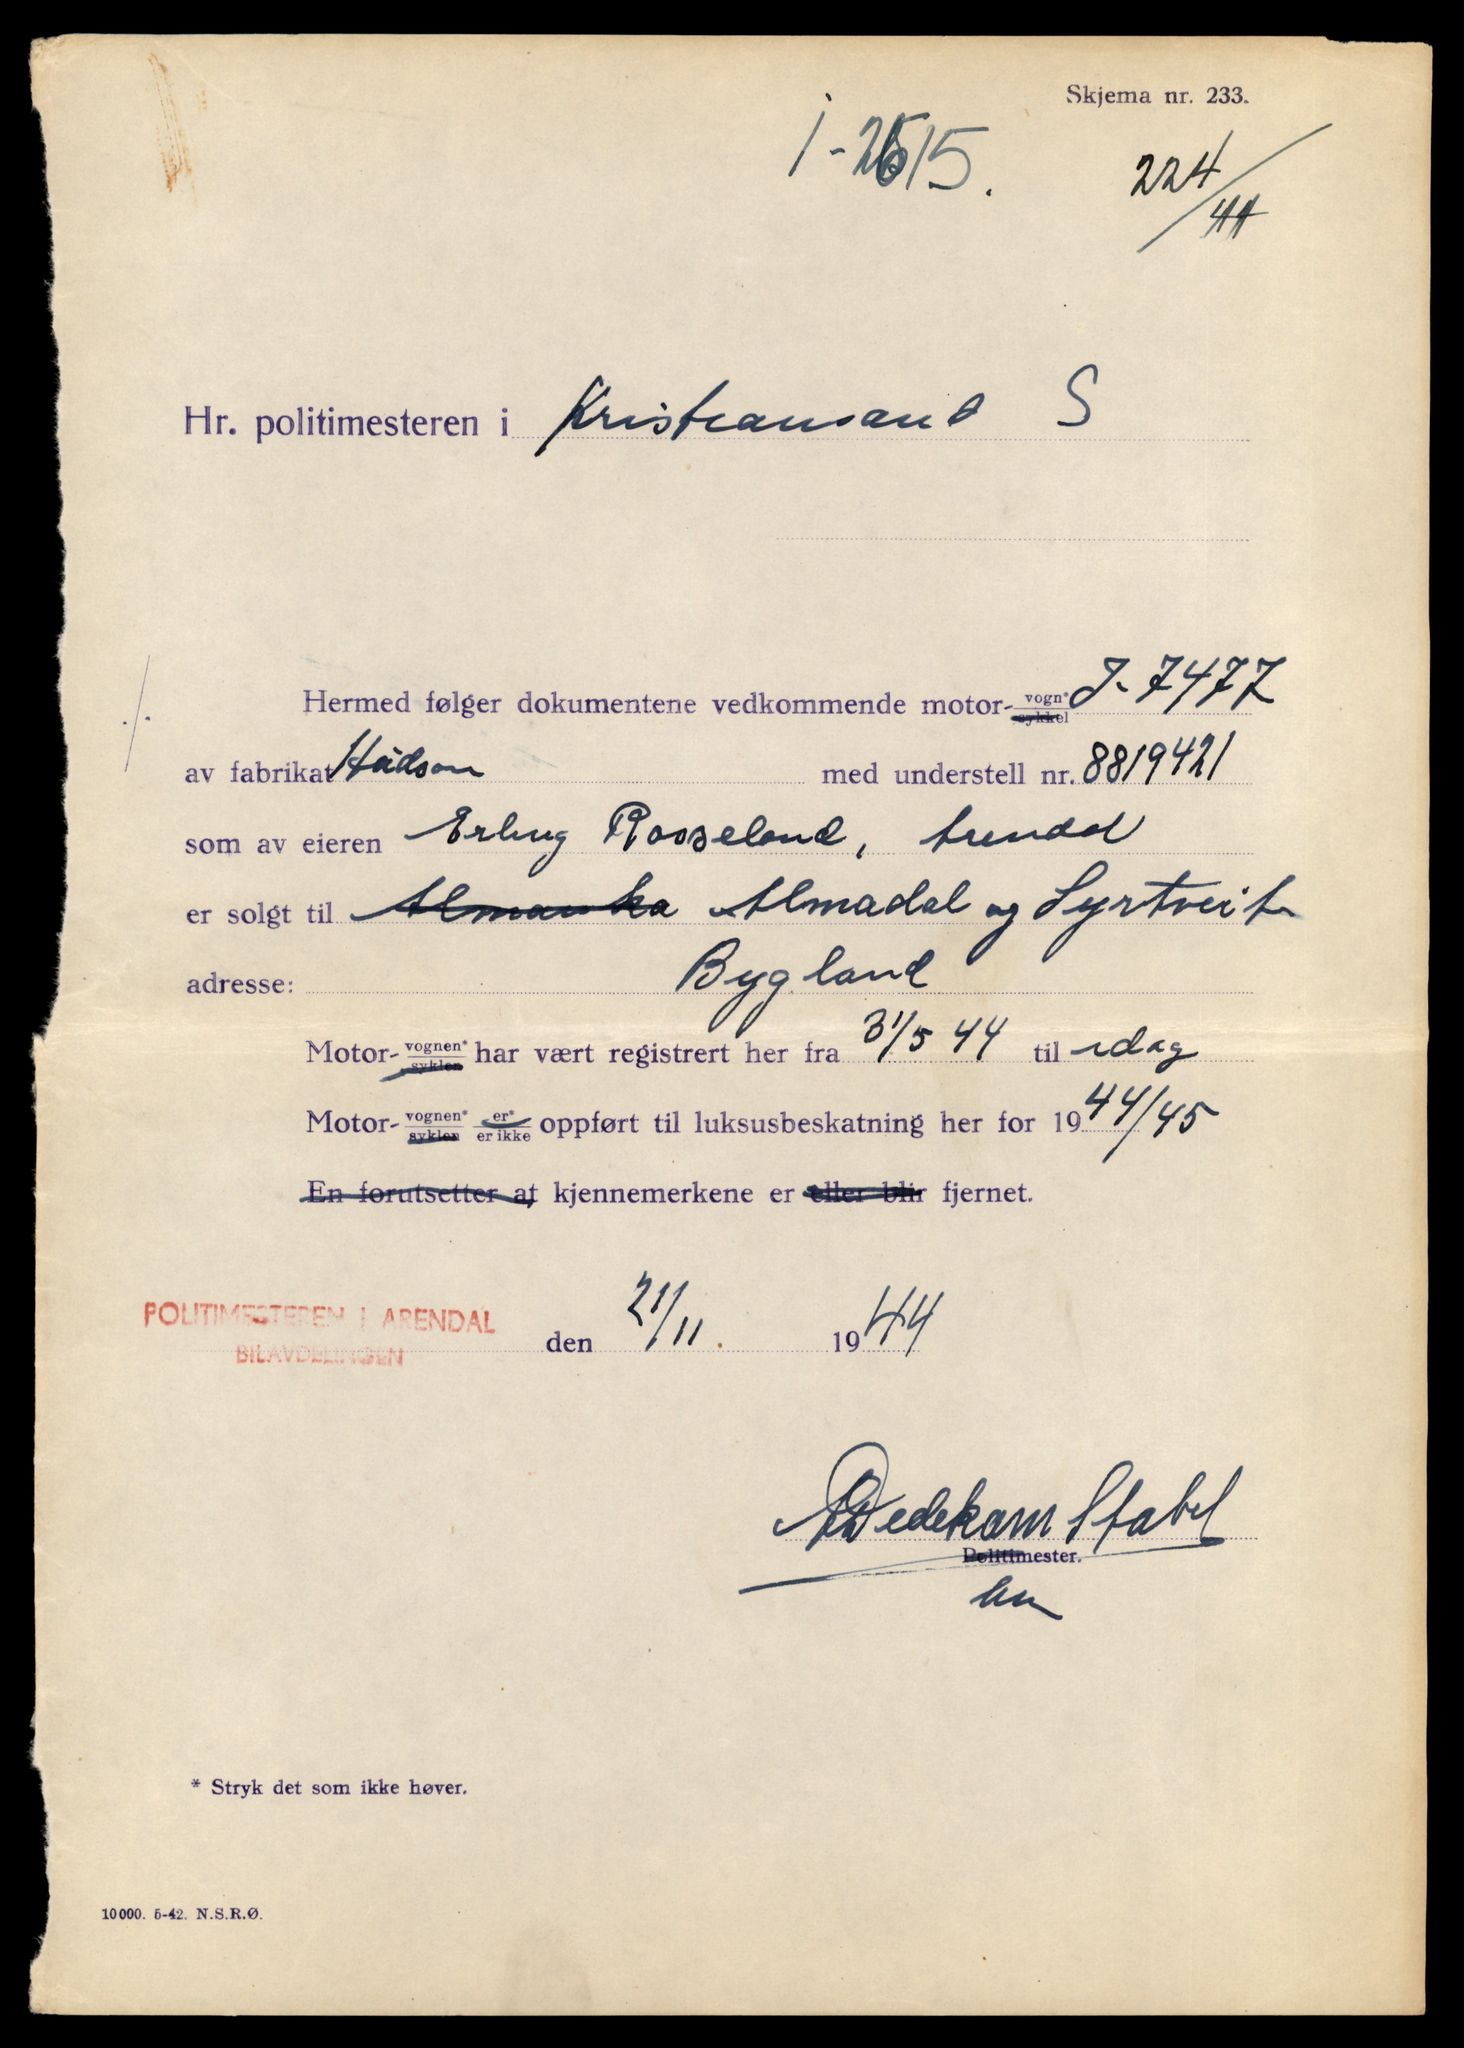 Skjema nr. 233.
I-2515.
224/44
Hr. politimesteren i Kristiansand S
./.
Hermed følger dokumentene vedkommende motor- vogn* sykkel I-7477
av fabrikat Hudson med understell nr. 8819421
som av eieren Erling Rosseland, Arendal
er solgt til Almadal og Syrtveit
adresse: Bygland
Motor- vognen* syklen har vært registrert her fra 31/5 44 til idag
Motor- vognen* syklen er* er ikke oppført til luksusbeskatning her for 1944/45
En forutsetter at kjennemerkene er eller blir fjernet.
POLITIMESTEREN I ARENDAL
BILAVDELINGEN
den 21/11. 1944
Dedekam Stabel
Politimester.
* Stryk det som ikke høver.
10000. 5-42. N.S.R.Ø.